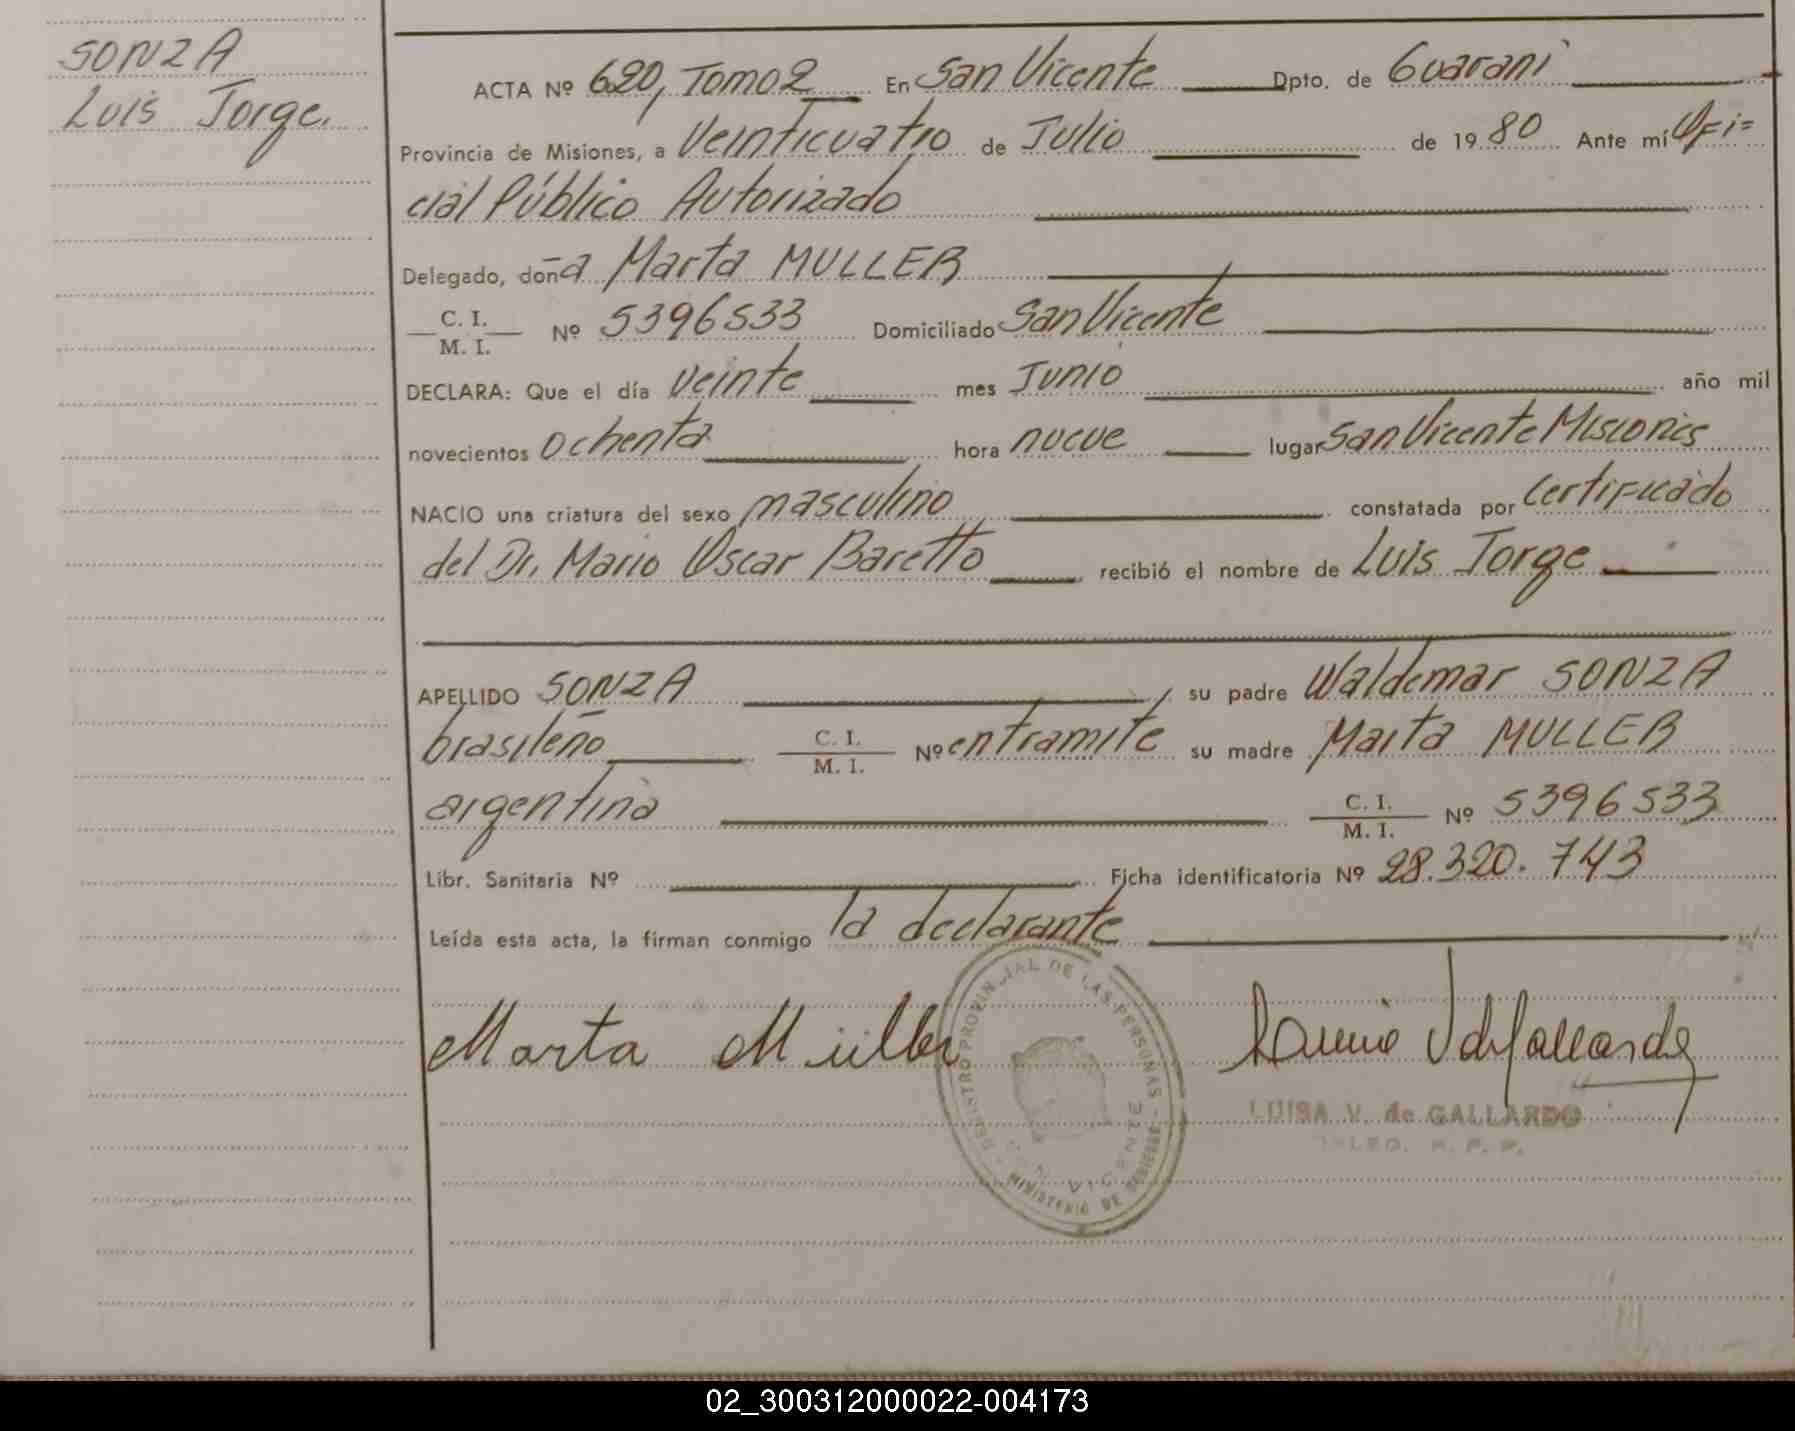 SONZA
Luis Jorge.
ACTA Nº 620, Tomo 2 En San Vicente Dpto. de Guaraní
Provincia de Misiones, a Veinticuatro de Julio de 1980 Ante mí Ofi=
cial Público Autorizado
Delegado, doña Marta MULLER
C. I.
M. I. Nº 5396533 Domiciliado San Vicente
DECLARA: Que el día Veinte mes Junio año mil
novecientos ochenta hora nueve lugar San Vicente Misiones
NACIO una criatura del sexo masculino constatada por certificado
del Dr. Mario Oscar Baretto recibió el nombre de Luis Jorge
APELLIDO SONZA, su padre Waldemar SONZA
brasileño C. I.
M. I. Nº entramite su madre Marta MULLER
argentina C. I.
M. I. Nº 5396533
Libr. Sanitaria Nº Ficha identificatoria Nº 28.320.743
Leída esta acta, la firman conmigo la declarante
Marta Müller
REGISTRO PROVINCIAL DE LAS PERSONAS
VICENTE
MINISTERIO DE
LUISA V. de GALLARDO
02_300312000022-004173